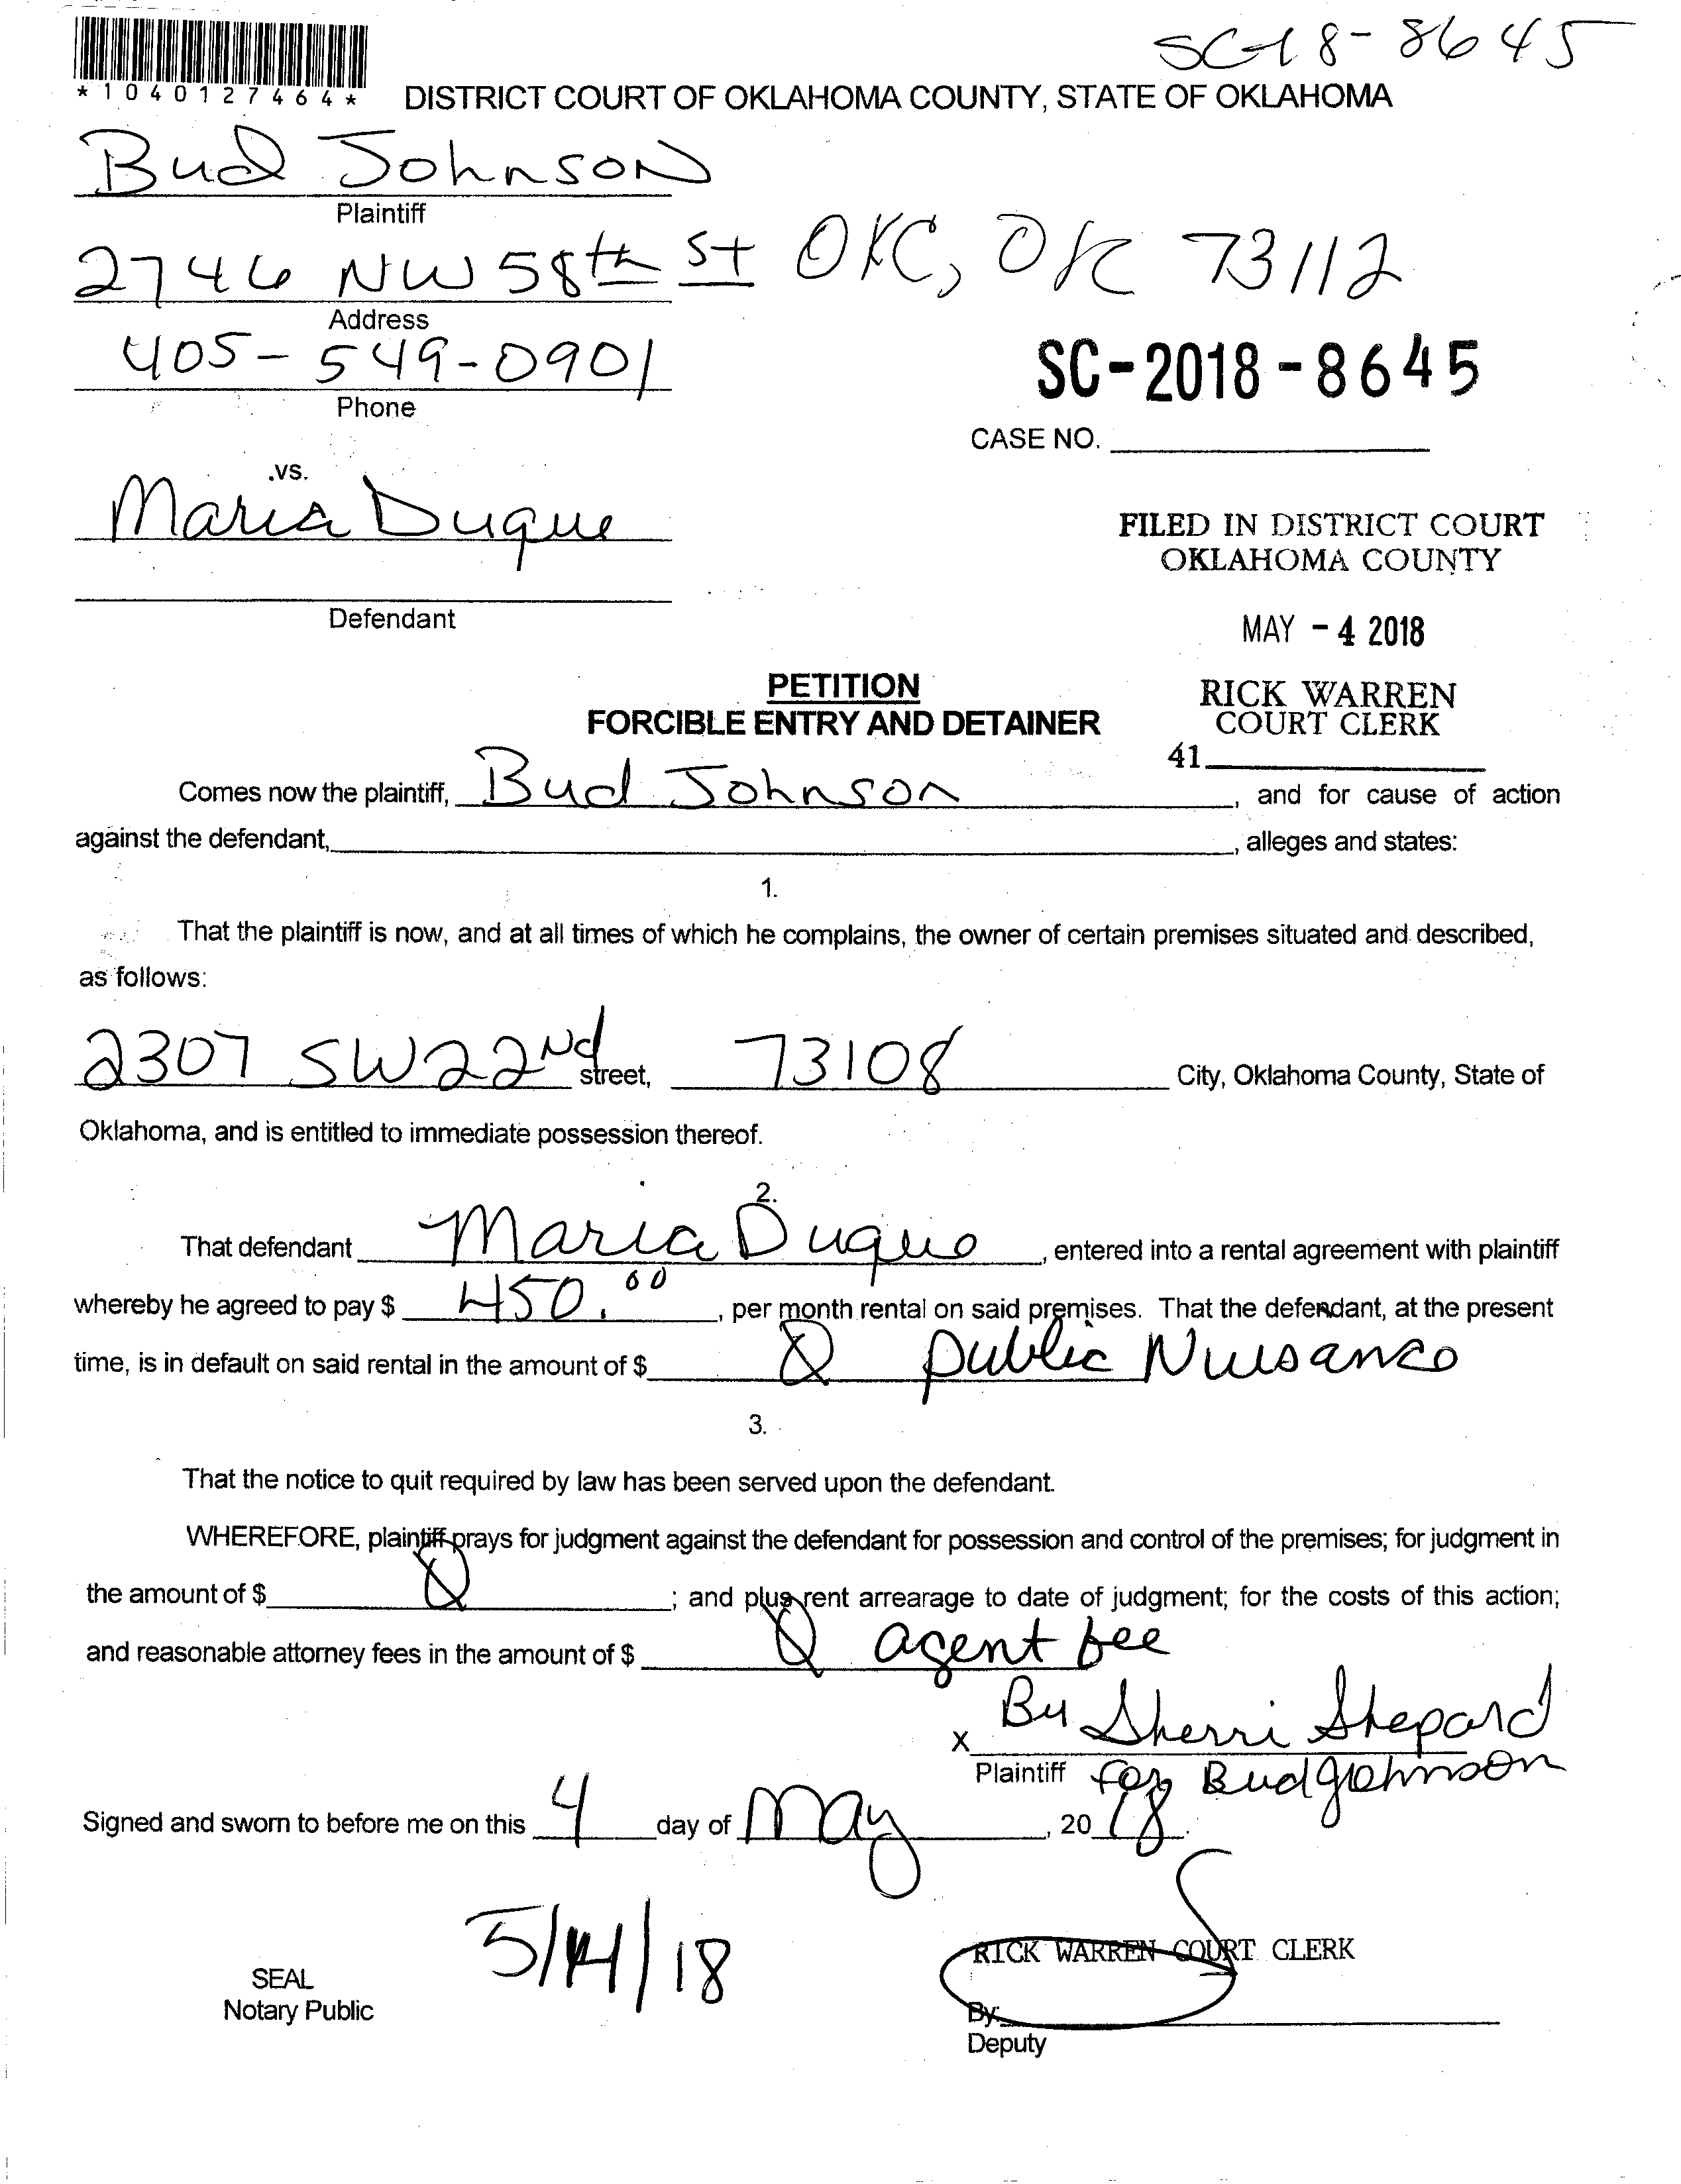 SC-18-8645
*1040127464*
DISTRICT COURT OF OKLAHOMA COUNTY, STATE OF OKLAHOMA
Bud Johnson
Plaintiff
2746 NW 58th St OKC, OK 73112
Address
405-549-0901
Phone
SC-2018-8645
CASE NO.
.vs.
Maria Duque
FILED IN DISTRICT COURT
OKLAHOMA COUNTY
Defendant
MAY - 4 2018
PETITION
FORCIBLE ENTRY AND DETAINER
RICK WARREN
COURT CLERK
41
Comes now the plaintiff, Bud Johnson, and for cause of action
against the defendant, , alleges and states:
1.
That the plaintiff is now, and at all times of which he complains, the owner of certain premises situated and described,
as follows:
2307 SW 22Nd street, 73108 City, Oklahoma County, State of
Oklahoma, and is entitled to immediate possession thereof.
2.
That defendant Maria Duque, entered into a rental agreement with plaintiff
whereby he agreed to pay $ 450.00, per month rental on said premises. That the defendant, at the present
time, is in default on said rental in the amount of $ 0 public Nuisance
3.
That the notice to quit required by law has been served upon the defendant.
WHEREFORE, plaintiff prays for judgment against the defendant for possession and control of the premises; for judgment in
the amount of $ 0 ; and plus rent arrearage to date of judgment; for the costs of this action;
and reasonable attorney fees in the amount of $ 0 agent fee
By Sherri Shepard
X
Plaintiff for Bud Johnson
Signed and sworn to before me on this 4 day of May, 2018.
5/14/18
RICK WARREN COURT CLERK
SEAL
Notary Public
By:
Deputy